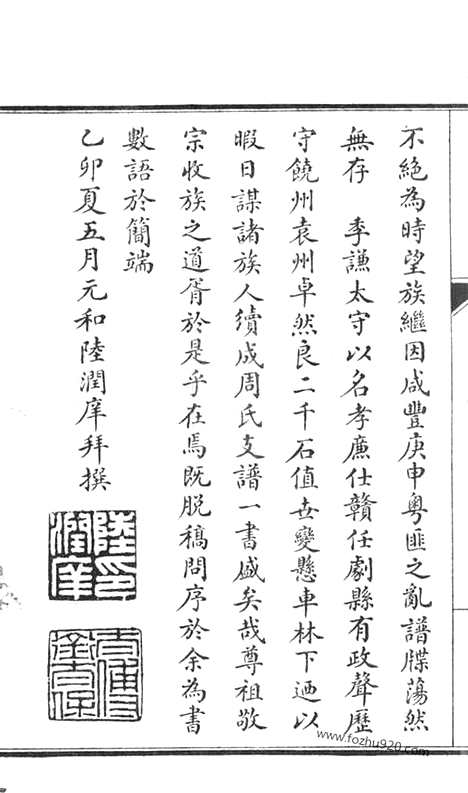 不絕為時望族繼因咸豐庚申粵匪之亂譜牒蕩然
無存　季謙太守以名孝廉仕贛任劇縣有政聲歷
守饒州袁州卓然良二千石值世變懸車林下迺以
暇日謀諸族人續成周氏支譜一書盛矣哉尊祖敬
宗收族之道胥於是乎在焉既脫稿問序於余為書
數語於簡端
乙卯夏五月元和陸潤庠拜撰
陸印潤庠
太傅銜太保
www.fozhu920.com